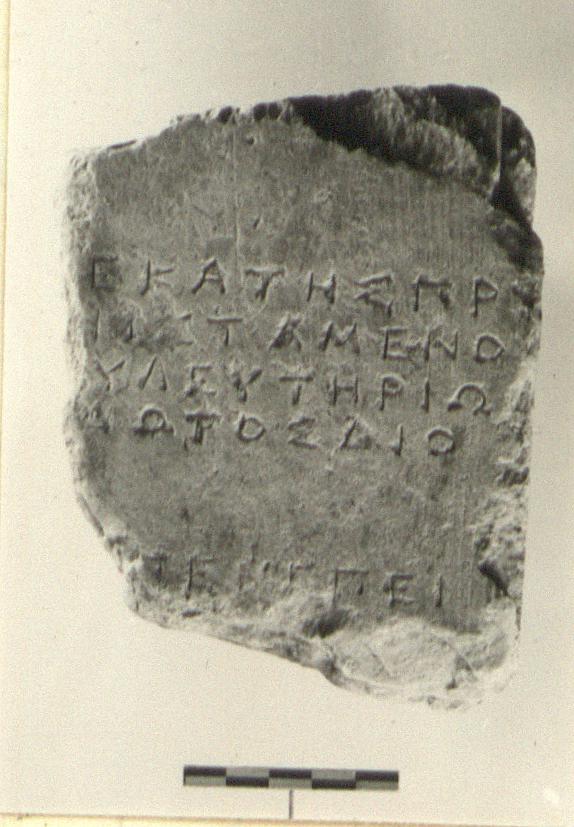 ΕΚΑΤΗΣΠΡ
ΙΣΤΑΜΕΝΟ
ΥΛΕΥΤΗΡΙΩ
ΩΤΟΣΔΙΟ
ΠΕΙ